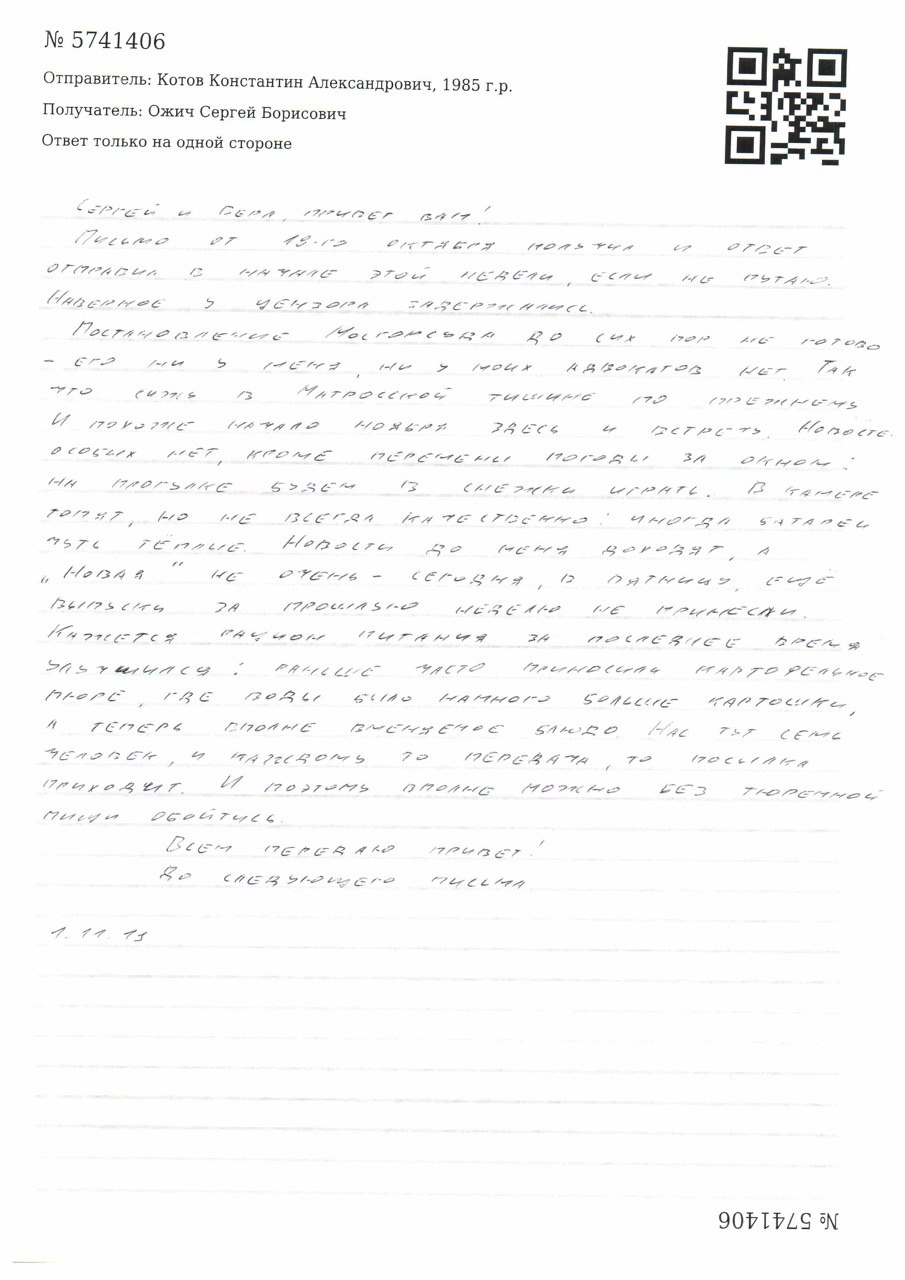 № 5741406
Отправитель: Котов Константин Александрович, 1985 г.р.
Получатель: Ожич Сергей Борисович
Ответ только на одной стороне
Сергей и Вера, привет вам!
Письмо от 19-го октября получил и ответ
отправил в начале этой недели, если не путаю.
Наверное у цензора задержались.
Постановление Мосгорсуда до сих пор не готово
– его ни у меня, ни у моих адвокатов нет. Так
что сижу в Матросской тишине по прежнему
И похоже начало ноября здесь и встречу. Новостей
особых нет, кроме перемены погоды за окном:
на прогулке будем в снежки играть. В камере
топят, но не всегда качественно: иногда батареи
чуть тёплые. Новости до меня доходят, а
„Новая" не очень – сегодня, в пятницу, ещё
выпуски за прошлую неделю не принесли.
Кажется рацион питания за последнее время
улучшился: раньше часто приносили картофельное
пюре, где воды было намного больше картошки,
а теперь вполне вменяемое блюдо. Нас тут семь
человек, и каждому то передача, то посылка
приходит. И поэтому вполне можно без тюремной
пищи обойтись.
Всем передаю привет!
До следующего письма
1.11.19
№ 5741406